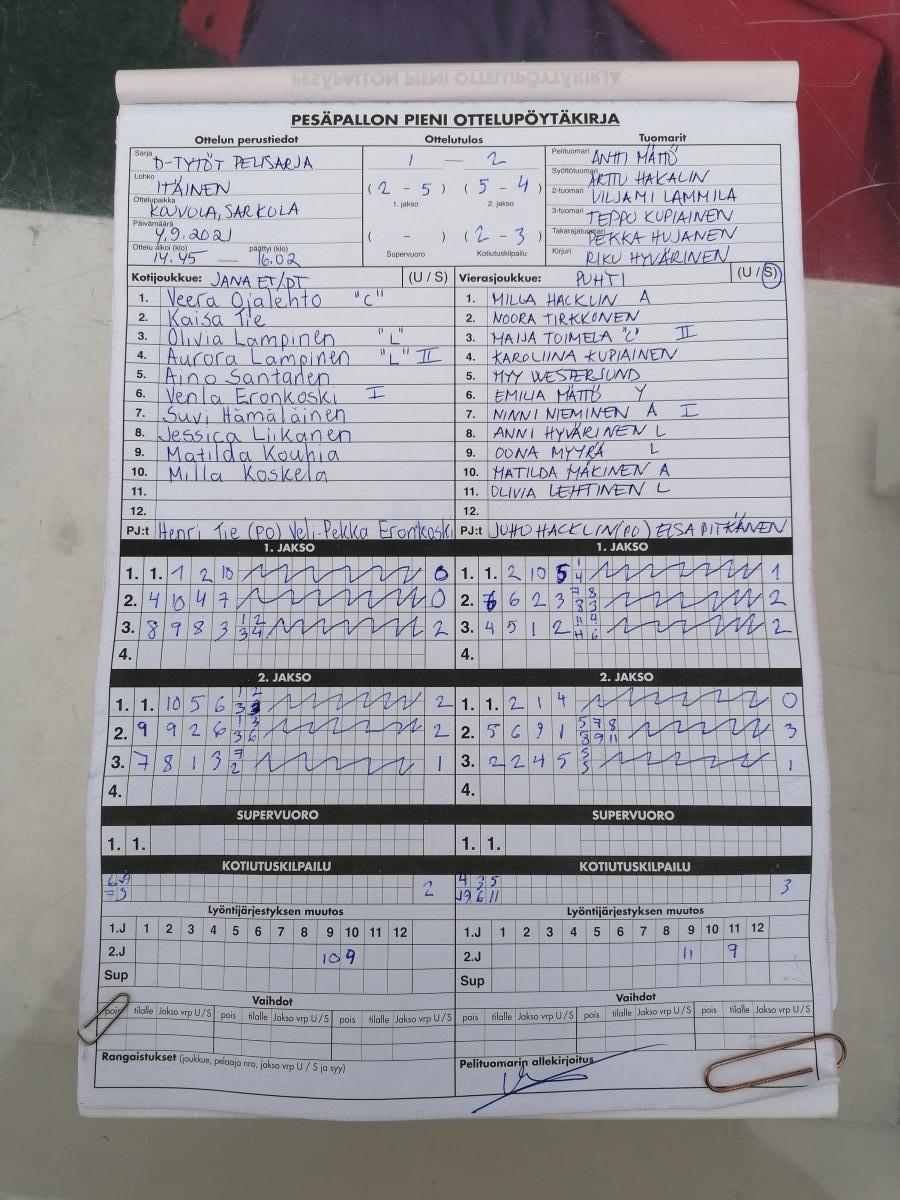 PESÄPALLON PIENI OTTELUPÖYTÄKIRJA
Ottelun perustiedot Ottelutulos Tuomarit
Sarja D-TYTÖT PELISARJA 1 — 2 Pelituomari ANTTI MÄTTÖ
Lohko ITÄINEN (2 - 5) (5 - 4) Syöttötuomari ARTTU HAKALIN
Ottelupaikka KOUVOLA, SARKOLA 1. jakso 2. jakso 2-tuomari VILJAMI LAMMILA
Päivämäärä 4.9.2021 ( - ) (2 - 3) 3-tuomari TEPPO KUPIAINEN
Takarajatuomari PEKKA HUJANEN
Ottelu alkoi (klo) 14.45 — päättyi (klo) 16.02 Supervuoro Kotiutuskilpailu Kirjuri RIKU HYVÄRINEN
Kotijoukkue: JANA ET/DT (U / S) Vierasjoukkue: PUHTI (U / S)
1. Veera Ojalehto "C" 1. MILLA HACKLIN A
2. Kaisa Tie 2. NOORA TIRKKONEN
3. Olivia Lampinen "L" 3. MAIJA TOIMELA "C" II
4. Aurora Lampinen "L" II 4. KAROLIINA KUPIAINEN
5. Aino Santanen 5. MYY WESTERSUND
6. Venla Eronkoski I 6. EMILIA MÄTTÖ Y
7. Suvi Hämäläinen 7. NINNI NIEMINEN A I
8. Jessica Liikanen 8. ANNI HYVÄRINEN L
9. Matilda Kouhia 9. OONA MYYRÄ L
10. Milla Koskela 10. MATILDA MÄKINEN A
11. 11. OLIVIA LEHTINEN L
12. 12.
PJ:t Henri Tie (PO) Veli-Pekka Eronkoski PJ:t JUHO HACKLIN (PO) ELSA PITKÄNEN
1. JAKSO 1. JAKSO
1. 1. 1 2 10 0 1. 1. 2 10 5 1 4 1
2. 4 10 4 7 0 2. 6 6 2 3 7 8 8 3 2
3. 8 9 8 3 1 2 3 4 2 3. 4 5 1 2 11 4 11 6 2
4. 4.
2. JAKSO 2. JAKSO
1. 1. 10 5 6 1 2 3 3 2 1. 1. 2 1 4 0
2. 9 9 2 6 1 3 3 6 2 2. 5 6 9 1 5 7 8 8 9 11 3
3. 7 8 1 3 7 2 1 3. 2 2 4 5 5 3 1
4. 4.
SUPERVUORO SUPERVUORO
1. 1. 1. 1.
KOTIUTUSKILPAILU KOTIUTUSKILPAILU
2 4 3 5 3
6 11
Lyöntijärjestyksen muutos Lyöntijärjestyksen muutos
1.J 1 2 3 4 5 6 7 8 9 10 11 12 1.J 1 2 3 4 5 6 7 8 9 10 11 12
2.J 10 9 2.J 11 9
Sup Sup
Vaihdot Vaihdot
pois tilalle Jakso vrp U/S pois tilalle Jakso vrp U/S pois tilalle Jakso vrp U/S pois tilalle Jakso vrp U/S pois tilalle Jakso vrp U/S pois tilalle Jakso vrp U/S
Rangaistukset (joukkue, pelaaja nro, jakso vrp U / S ja syy) Pelituomarin allekirjoitus